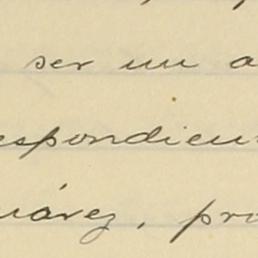 ser un a
espondien
uárez, pro